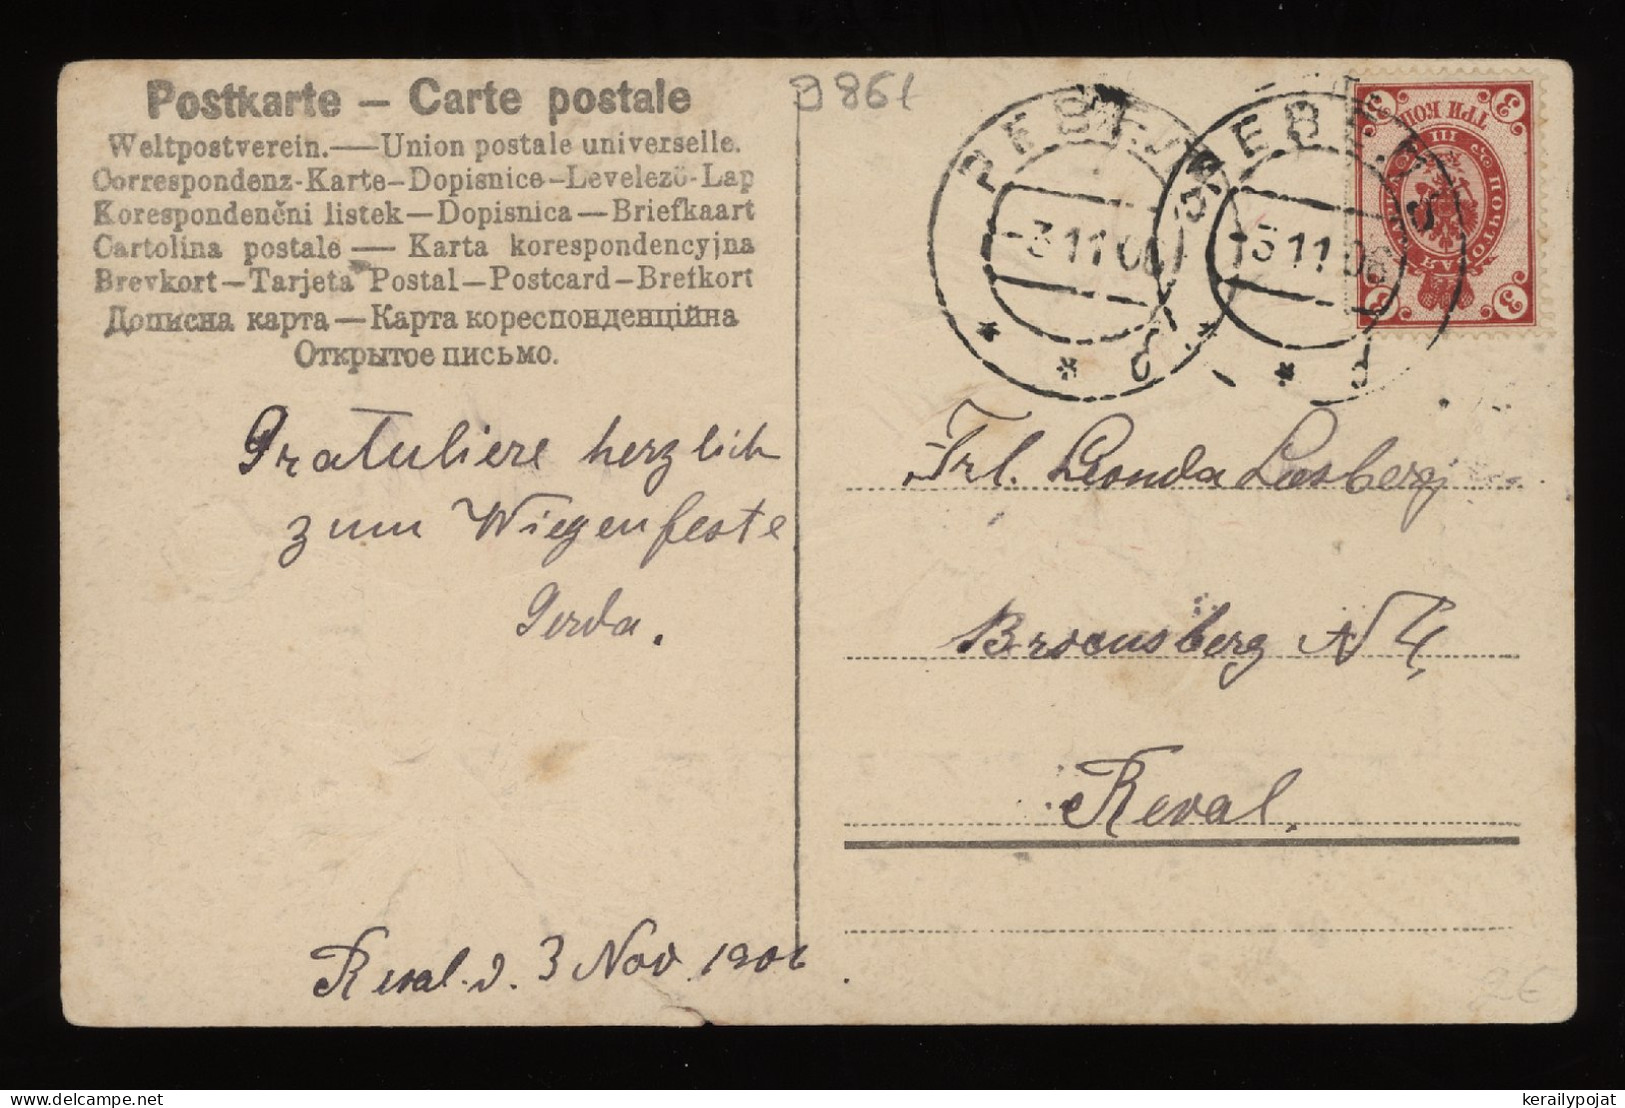 Postkarte – Carte postale
Weltpostverein.—Union postale universelle.
Correspondenz-Karte–Dopisnice–Levelező-Lap
Korespondenčni listek—Dopisnica—Briefkaart
Cartolina postale — Karta korespondencyjna
Brevkort–Tarjeta Postal–Postcard–Brefkort
Дописна карта—Карта кореспонденційна
Открытое письмо.
Gratuliere herzlich
zum Wiegenfeste
Gerda.
Reval. d. 3 Nov 1906
9861
3 11 06
3 11 06
ТРИ КОП
3 3
III
3 3
Frl. Leonda Lasberg
Brocusberg N 4,
Reval.
2€
delcampe.net
kerailypojat